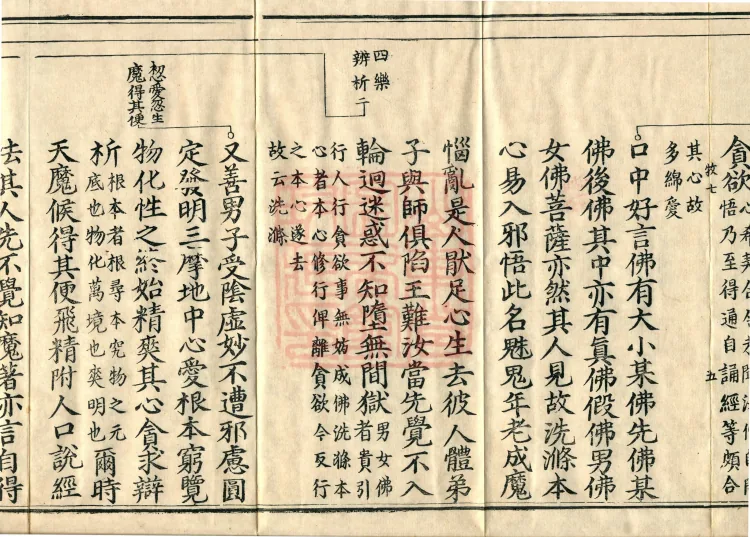 貪欲
悟乃至得通自誦經等頗合
其心故
多綿愛
五
口中好言佛有大小某佛先佛某
佛後佛其中亦有眞佛假佛男佛
女佛菩薩亦然其人見故洗滌本
心易入邪悟此名魅鬼年老成魔
惱亂是人厭足心生去彼人體弟
子與師俱陷王難汝當先覺不入
四樂
辨析
輪迴迷惑不知墮無間獄男女佛
者貴引
行人行貪欲事無妨成佛洗滌本
心者本心修行俾離貪欲令反行
之本心遂去
故云洗滌
又善男子受陰虛妙不遭邪慮圓
定發明三摩地中心愛根本窮覽
愛忽生
魔得其便
物化性之終始精爽其心貪求辯
析根本者根尋本究物之元
底也物化萬境也爽明也爾時
天魔候得其便飛精附人口說經
去其人先不覺知魔著亦言自得